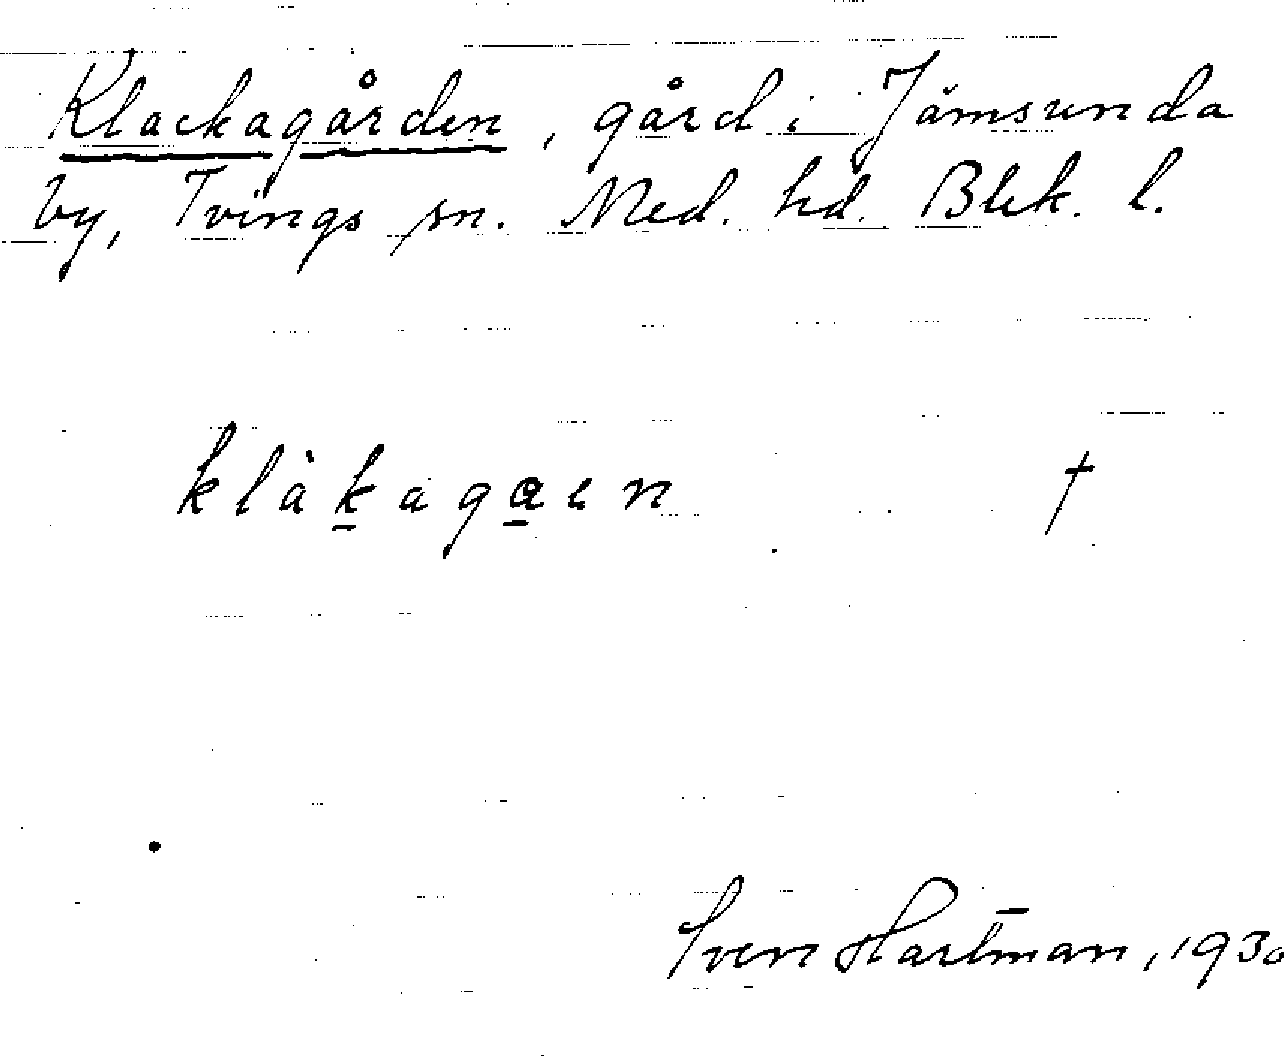 Klackagården, gård i Jämsunda
by, Tvings sn. Med. hd. Blek. l.
klàkagaen †
Sven Hartman, 1930